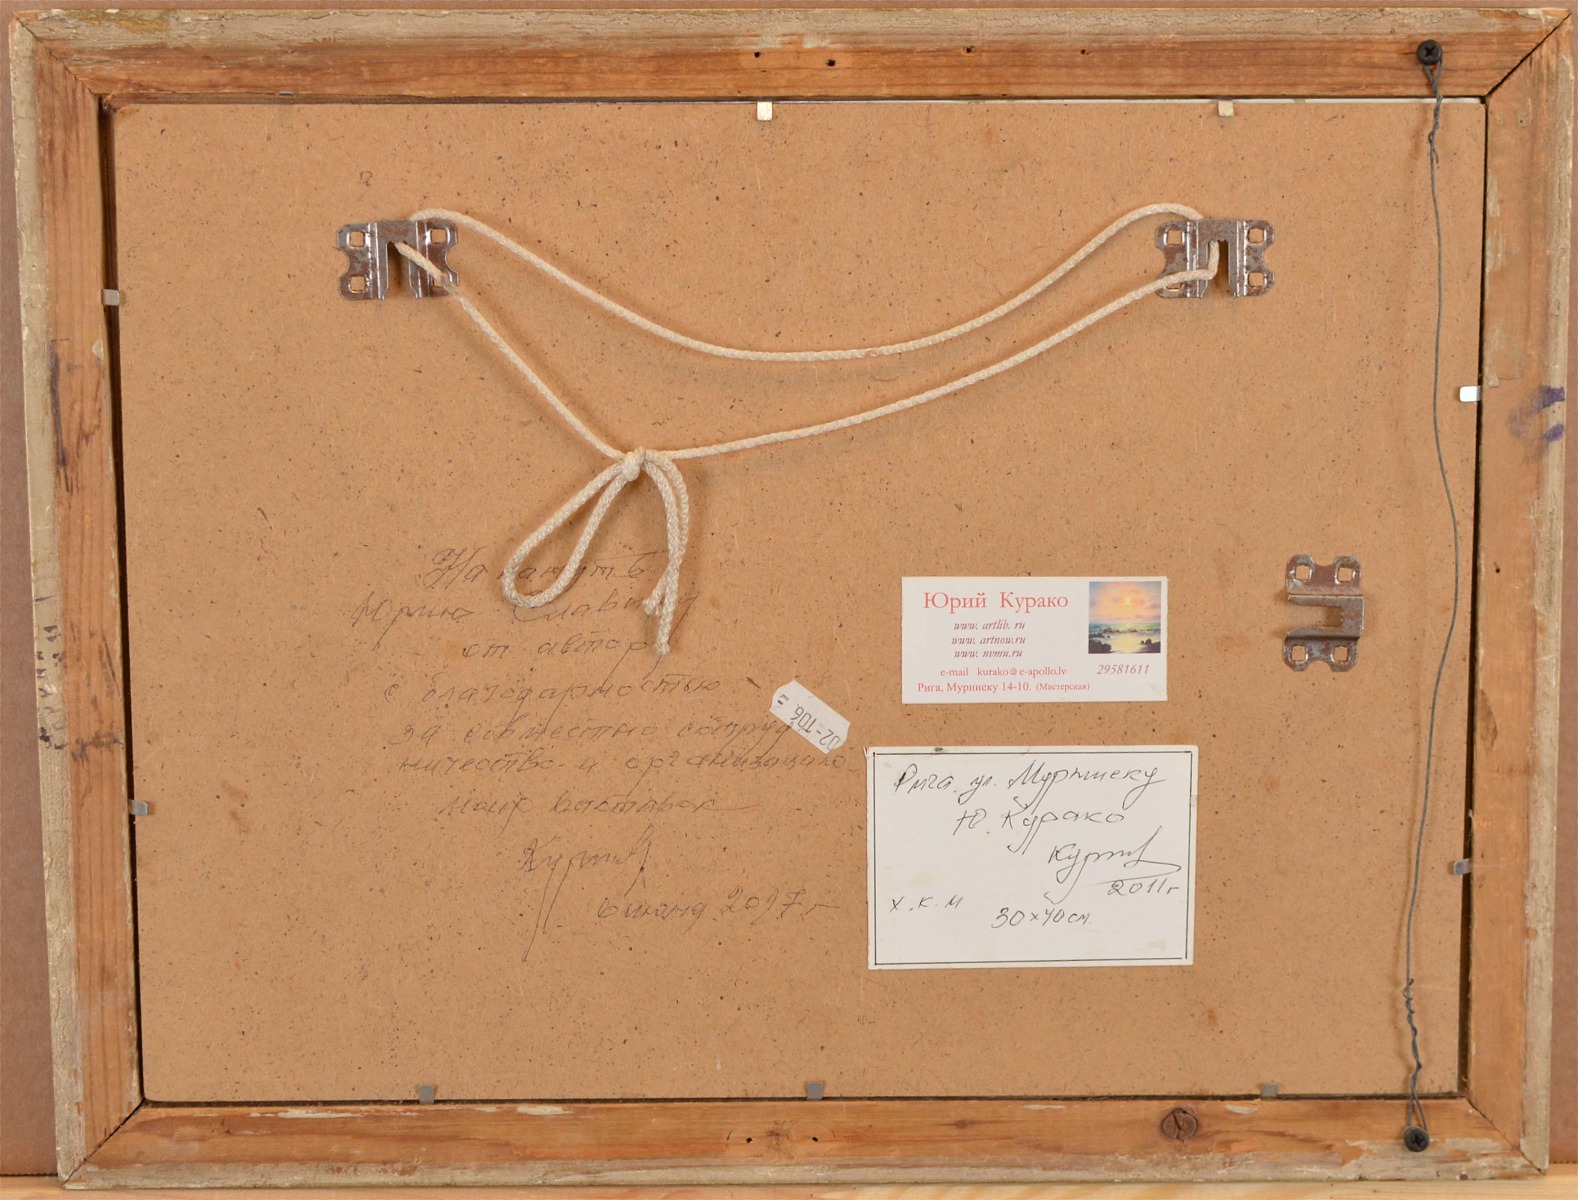 На память
Юрию Слави
от автора
с благодарностью
за совместное сотруд
ничество и организацию
моих выставок
6 июня 2017 г
02-106
Юрий Курако
www. artlib. ru
www. artnow.ru
www. nvmu.ru
e-mail kurako@e-apollo.lv 29581611
Рига, Мурниеку 14-10. (Мастерская)
Рига. ул. Мурниеку
Ю. Курако
2011г
х.к.м
30×40см.